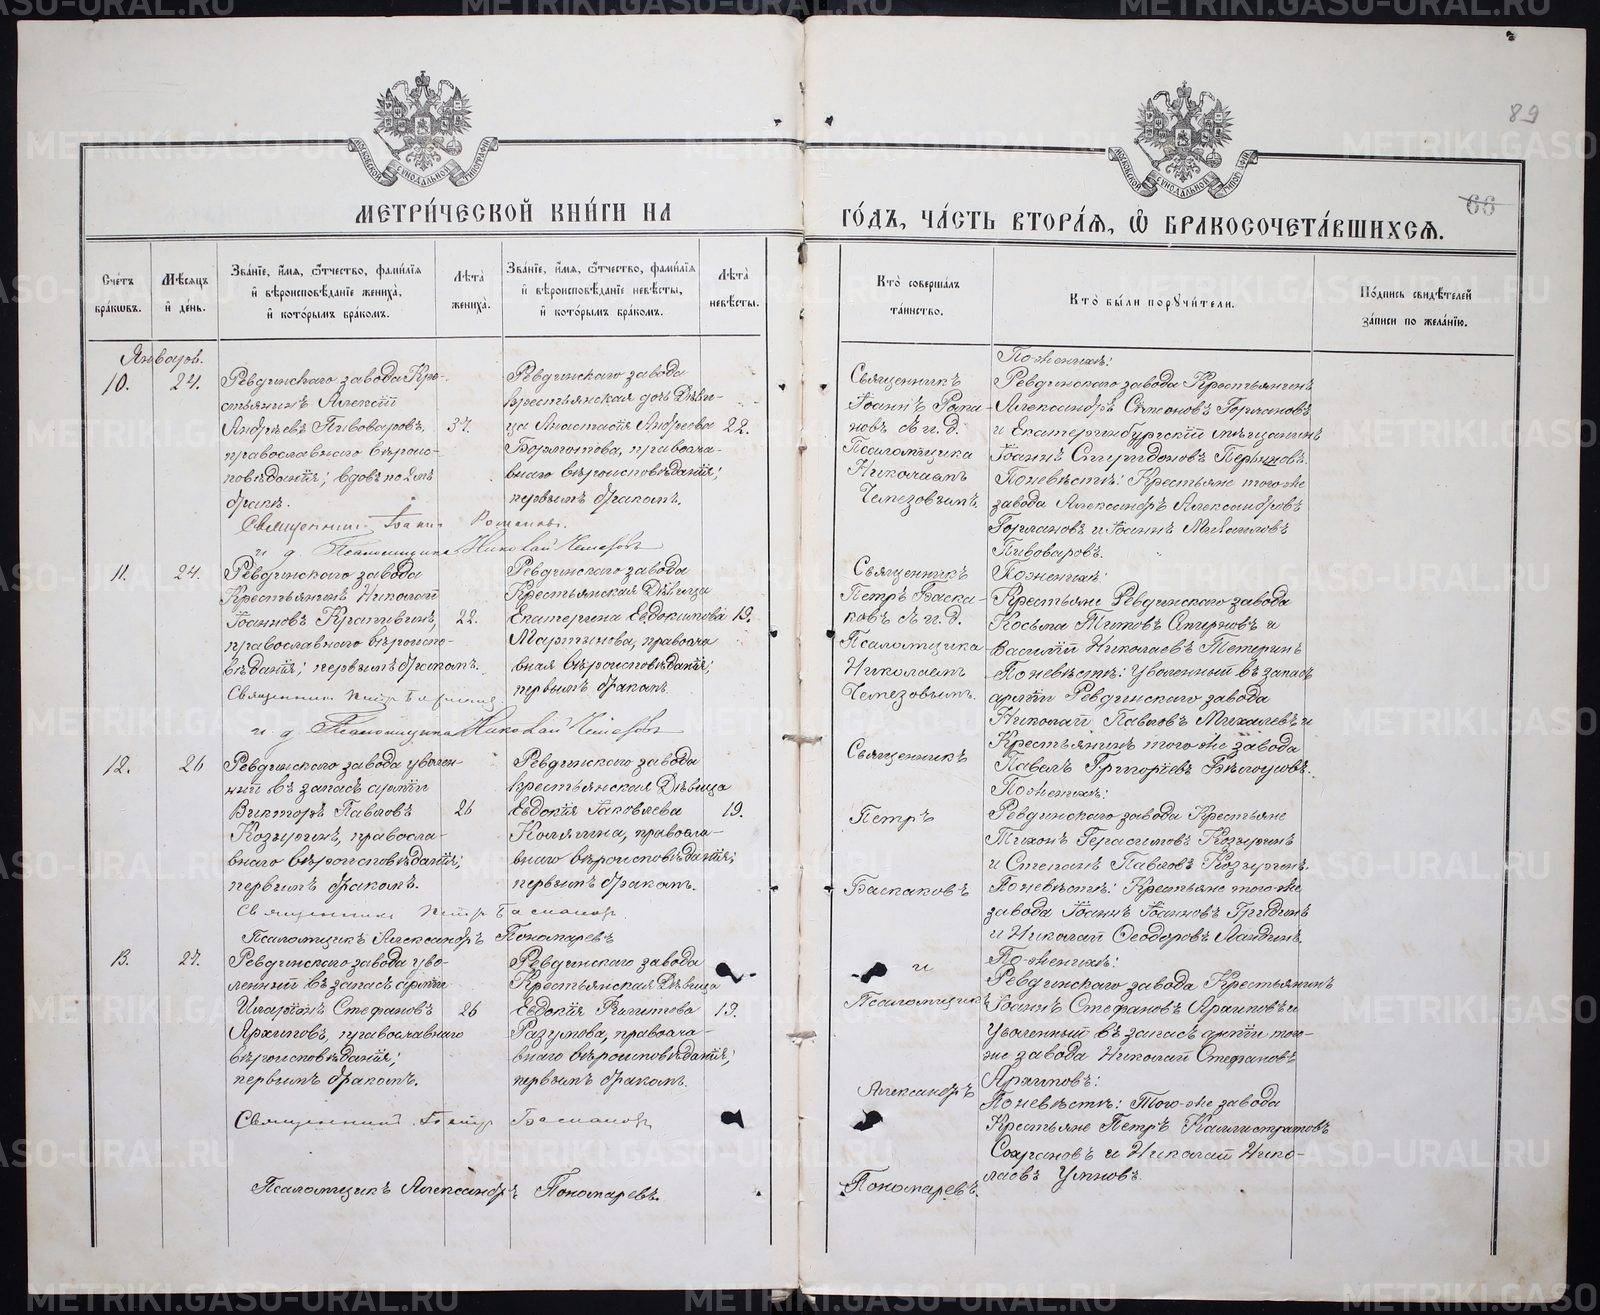 89
66
МОСКОВСКОЙ СѴНОДАЛЬНОЙ ТИПОГРАФІИ
МОСКОВСКОЙ СѴНОДАЛЬНОЙ ТИПОГРАФІИ
МЕТРИ́ЧЕСКОЙ КНИ́ГИ НА
ГО́ДЪ, ЧА́СТЬ ВТОРА́Я, Ѽ БРАКОСОЧЕТА́ВШИХСЯ.
Сче́тъ
бра́кѡвъ.
Мѣ́сяцъ
и҆ де́нь.
Зва́нїе, и҆́мя, ѻ҆́тчество, фами́лїя
и҆ вѣроисповѣ́данїе жениха̀,
и҆ кото́рымъ бра́комъ.
Лѣ́та
жениха̀.
Зва́нїе, и҆́мя, ѻ҆́тчество, фами́лїя
и҆ вѣроисповѣ́данїе невѣ́сты,
и҆ кото́рымъ бра́комъ.
Лѣ́та
невѣ́сты.
Кто̀ соверша́лъ
та́инство.
Кто̀ бы́ли поручи́тели.
По́дпись свидѣ́телей
за́писи по жела́нїю.
Январь.
10.
24.
Ревдинскаго завода Кре-
стьянинъ Алексій
Андреевъ Пивоваровъ,
православнаго вѣроис-
повѣданія; вдовъ по 2мъ
бракѣ.
37.
Ревдинскаго завода
крестьянская дочь Дѣви-
ца Анастасія Андреева
православ-
наго вѣроисповѣданія;
первымъ бракомъ.
22.
Священникъ
Іоаннъ Рома-
новъ съ и. д.
Псаломщика
Николаемъ
Чемезовымъ.
По женихѣ:
Ревдинскаго завода Крестьянинъ
Александръ Симоновъ Горчановъ
и Екатеринбургскій мѣщанинъ
Іоаннъ Спиридоновъ
По невѣстѣ: Крестьяне того-же
завода Александръ Александровъ
и Іоаннъ
Пивоваровъ.
Священникъ Іоаннъ Романовъ.
и. д. Псаломщика Николай Чемезовъ
11.
24.
Ревдинскаго завода
Крестьянинъ Николай
Іоанновъ Крапивинъ,
православнаго вѣроиспо-
вѣданія; первымъ бракомъ.
22.
Ревдинскаго завода
Крестьянская Дѣвица
Екатерина Евдокимова
Мартынова, правосла-
вная вѣроисповѣданія;
первымъ бракомъ.
19.
Священникъ
Петръ Баска-
ковъ съ и. д.
Псаломщика
Николаемъ
Чемезовымъ.
По женихѣ:
Крестьяне Ревдинскаго завода
Косьма Титовъ Смирновъ и
Василій Николаевъ Тетеринъ
По невѣстѣ: Уволенный въ запасъ
арміи Ревдинскаго завода
Николай Павловъ Михалевъ и
Крестьянинъ того-же завода
Павелъ Григорьевъ Бѣлоусовъ.
Священникъ Петръ Баскаковъ
и. д. Псаломщика Николай Чемезовъ
12.
26
Ревдинскаго завода уволен-
ный въ запасъ арміи
Викторъ Павловъ
Козыринъ, правосла-
внаго вѣроисповѣданія;
первымъ бракомъ.
26
Ревдинскаго завода
крестьянская Дѣвица
Евдокія Іаковлева
Колягина, правосла-
внаго вѣроисповѣданія;
первымъ бракомъ.
19.
Священникъ
Петръ
Баскаковъ
По женихѣ:
Ревдинскаго завода Крестьяне
Тихонъ Герасимовъ Козыринъ
и Степанъ Павловъ Козыринъ.
По невѣстѣ: Крестьяне того-же
завода Іоаннъ Іоанновъ Гридинъ
и Николай Ѳеодоровъ
Священникъ Петръ Баскаковъ.
Псаломщикъ Александръ Пономаревъ
13.
27.
Ревдинскаго завода уво-
ленный въ запасъ арміи
Стефановъ
Архиповъ, православнаго
вѣроисповѣданія;
первымъ бракомъ.
26
Ревдинскаго завода
Крестьянская Дѣвица
Евдокія
Разумова, правосла-
внаго вѣроисповѣданія;
первымъ бракомъ.
19.
и
Псаломщикъ
Александръ
Пономаревъ.
По женихѣ:
Ревдинскаго завода Крестьянинъ
Іоаннъ Стефановъ Архиповъ и
Уволенный въ запасъ арміи того-
же завода Николай Стефановъ
Архиповъ:
По невѣстѣ: Того-же завода
Крестьяне Петръ Каллистратовъ
и Николай Нико-
лаевъ Умновъ.
Священникъ Петръ Баскаковъ
Псаломщикъ Александръ Пономаревъ.
METRIKI.GASO-URAL.RU